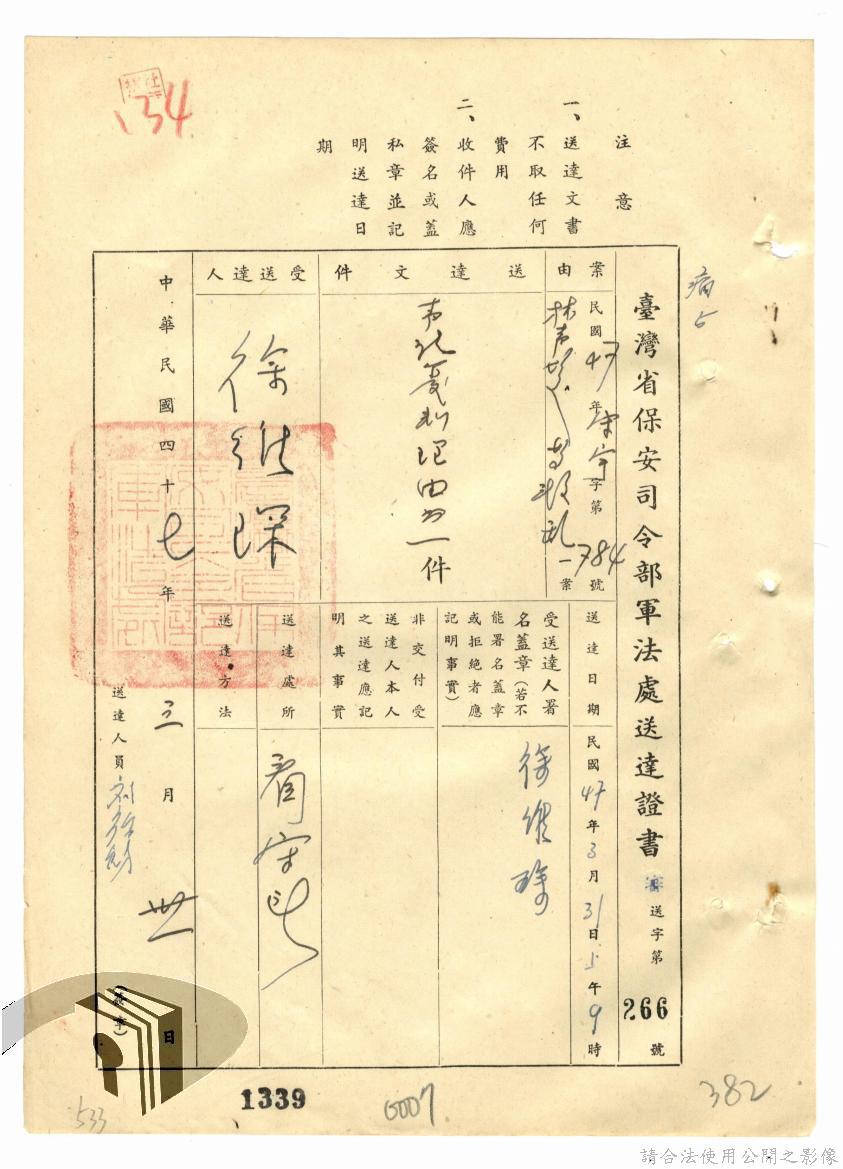 134
注意
一、送達文書
不取任何
費用
二、收件人應
簽名或蓋
私章並記
明送達日
期
病占
臺灣省保安司令部軍法處送達證書
審送字第266號
案由
民國47年審字第784號
林等叛亂一案
送達文件
理由書一件
受送達人
徐維琛
送達日期
民國47年3月31日上午9時
受送達人署
名蓋章(若不
能署名蓋章
或拒絕者應
記明事實)
徐維琛
非交付受
送達人本人
之送達應記
明其事實
送達處所
看守所
送達方法
中華民國四十七年三月卅一日
送達人員
(蓋章)
533
1339
0007
382
請合法使用公開之影像